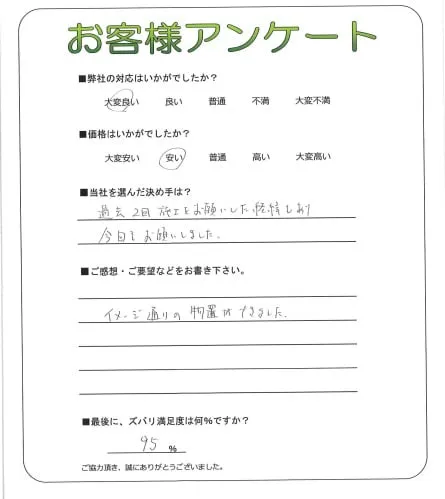 お客様アンケート
■弊社の対応はいかがでしたか？
大変良い 良い 普通 不満 大変不満
■価格はいかがでしたか？
大変安い 安い 普通 高い 大変高い
■当社を選んだ決め手は？
過去2回施工をお願いした経緯もあり
今回もお願いしました。
■ご感想・ご要望などをお書き下さい。
イメージ通りの物置ができました。
■最後に、ズバリ満足度は何％ですか？
95 ％
ご協力頂き、誠にありがとうございました。